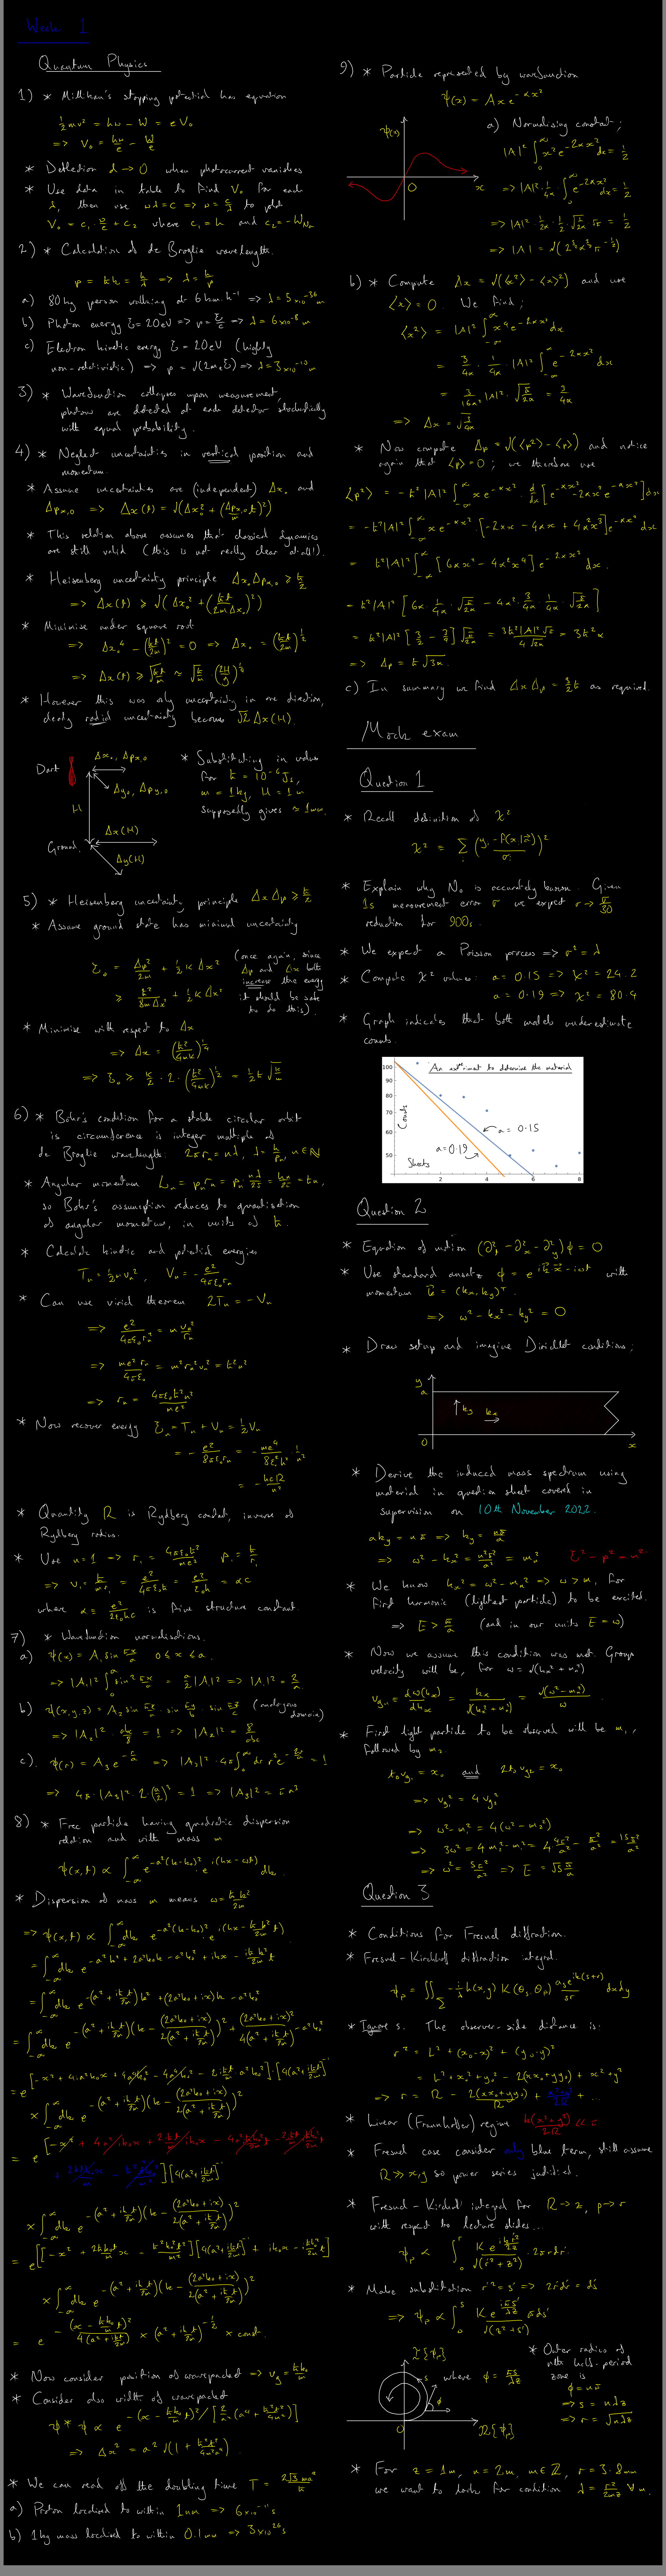 Week 1
Quantum Physics
1) * Millikan's stopping potential has equation
½mv² = hν - W = eV₀
=> V₀ = hν/e - W/e
* Deflection d → 0 when photocurrent vanishes
* Use data in table to find V₀ for each
λ, then use νλ = c => ν = c/λ to plot
V₀ = c₁ · ν/e + c₂ where c₁ = h and c₂ = -W
2) * Calculation of de Broglie wavelengths.
p = ħk = h/λ => λ = h/p
a) 80kg person walking at 6 km h⁻¹ => λ = 5×10⁻³⁶ m
b) Photon energy E = 20eV => p = E/c => λ = 6×10⁻⁸ m
c) Electron kinetic energy E = 20eV (highly
non-relativistic) => p = √(2mₑE) => λ = 3×10⁻¹⁰ m
3) * Wavefunction collapses upon measurement
photons are detected at each detector stochastically
with equal probability.
4) * Neglect uncertainties in vertical position and
momentum.
* Assume uncertainties are (independent) Δx₀ and
Δpx,0 => Δx(t) = √(Δx₀² + (Δpx,0 t/m)²)
* This relation above assumes that classical dynamics
are still valid (this is not really clear at all!).
* Heisenberg uncertainty principle Δx₀Δpx,0 ≥ ħ/2
=> Δx(t) ≥ √(Δx₀² + (ħt/2mΔx₀)²)
* Minimise under square root
=> Δx₀⁴ - (ħt/2m)² = 0 => Δx₀ = (ħt/2m)^½
=> Δx(t) ≥ √(ħt/m) ≈ √(ħ/m) (2H/g)^¼
* However this was only uncertainty in one direction,
clearly radial uncertainty becomes √2 Δx(H).
Dart
Δx₀, Δpx,0
Δy₀, Δpy,0
H
Δx(H)
Ground.
Δy(H)
* Substituting in values
for ħ = 10⁻⁶ Js,
m = 1kg, H = 1m
supposedly gives ≈ 1mm.
5) * Heisenberg uncertainty principle ΔxΔp ≥ ħ/2
* Assume ground state has minimal uncertainty
E₀ = Δp²/2m + ½KΔx²
≥ ħ²/8mΔx² + ½KΔx²
(once again, since
Δp and Δx both
increase the energy
it should be safe
to do this).
* Minimise with respect to Δx
=> Δx = (ħ²/4mK)^¼
=> E₀ ≥ K/2 · 2 · (ħ²/4mK)^½ = ½ħ√(K/m)
6) * Bohr's condition for a stable circular orbit
is circumference is integer multiple of
de Broglie wavelength. 2πrₙ = nλ, λ = h/pₙ, n ∈ ℕ
* Angular momentum Lₙ = pₙrₙ = pₙ · nλ/2π = hn/2π = ħn,
so Bohr's assumption reduces to quantisation
of angular momentum, in units of ħ.
* Calculate kinetic and potential energies
Tₙ = ½mvₙ², Vₙ = -e²/4πε₀rₙ
* Can use virial theorem 2Tₙ = -Vₙ
=> e²/4πε₀rₙ² = m vₙ²/rₙ
=> me²rₙ/4πε₀ = m²rₙ²vₙ² = ħ²n²
=> rₙ = 4πε₀ħ²n²/me²
* Now recover energy Eₙ = Tₙ + Vₙ = ½Vₙ
= -e²/8πε₀rₙ = -me⁴/8ε₀²h² · 1/n²
= -hcR/n²
* Quantity R is Rydberg constant, inverse of
Rydberg radius.
* Use n=1 => r₁ = 4πε₀ħ²/me² p₁ = ħ/r₁
=> v₁ = ħ/mr₁ = e²/4πε₀ħ = e²/2ε₀h = αc
where α = e²/2ε₀hc is fine structure constant.
7) * Wavefunction normalisations.
a) ψ(x) = A₁ sin πx/a 0 ≤ x ≤ a.
=> |A₁|² ∫₀ᵃ sin² πx/a = a/2 |A₁|² => |A₁|² = 2/a
b) ψ(x,y,z) = A₂ sin πx/a · sin πy/b · sin πz/c (analogous
domain)
=> |A₂|² · abc/8 = 1 => |A₂|² = 8/abc
c). ψ(r) = A₃ e^(-r/a) => |A₃|² · 4π ∫₀^∞ dr r² e^(-2r/a) = 1
=> 4π · |A₃|² · 2 (a/2)³ = 1 => |A₃|² = πa³
8) * Free particle having quadratic dispersion
relation and with mass m
ψ(x,t) ∝ ∫₋∞^∞ e^(-a²(k-k₀)²) e^(i(kx-ωt)) dk.
* Dispersion of mass m means ω = ħk²/2m
=> ψ(x,t) ∝ ∫₋∞^∞ dk e^(-a²(k-k₀)²) e^(i(kx - ħk²t/2m))
= ∫₋∞^∞ dk e^(-a²k² + 2a²k₀k - a²k₀² + ikx - iħk²t/2m)
= ∫₋∞^∞ dk e^(-(a² + iħt/2m)k² + (2a²k₀ + ix)k - a²k₀²)
= ∫₋∞^∞ dk e^(-(a² + iħt/2m)(k - (2a²k₀+ix)/2(a²+iħt/2m))² + (2a²k₀+ix)²/4(a²+iħt/2m) - a²k₀²)
= e^([-x² + 4ia²k₀x + 4a⁴k₀² - 4a⁴k₀² - 2iħt/m a²k₀²]·[4(a²+iħt/2m)]⁻¹)
× ∫₋∞^∞ dk e^(-(a² + iħt/2m)(k - (2a²k₀+ix)/2(a²+iħt/2m))²)
× ∫₋∞^∞ dk e^(-(a² + iħt/2m)(k - (2a²k₀+ix)/2(a²+iħt/2m))²)
= e^([-x² + 2ħk₀t/m x - ħ²k₀²t²/m²][4(a²+iħt/2m)]⁻¹ + ik₀x - iħk₀²t/2m)
× ∫₋∞^∞ dk e^(-(a² + iħt/2m)(k - (2a²k₀+ix)/2(a²+iħt/2m))²)
= e^(-(x - ħk₀t/m)²/4(a²+iħt/2m)) × (a² + iħt/2m)^(-½) × const.
* Now consider position of wavepacket => v_g = ħk₀/m
* Consider also width of wavepacket
ψ*ψ ∝ e^(-(x - ħk₀t/m)²/[2/a²(a⁴ + ħ²t²/4m²)])
=> Δx² = a²√(1 + ħ²t²/4m²a⁴).
* We can read off the doubling time T = 2√3 ma²/ħ
a) Proton localised to within 1nm => 6×10⁻¹¹ s
b) 1kg mass localised to within 0.1mm => 3×10²⁶ s
9) * Particle represented by wavefunction
ψ(x) = Axe^(-αx²)
ψ(x)
O
x
a) Normalising constant;
|A|² ∫₀^∞ x² e^(-2αx²) dx = ½
=> |A|² · 1/4α · ∫₀^∞ e^(-2αx²) dx = ½
=> |A|² · 1/2α · ½ · √(1/2α) √π = ½
=> |A| = √(2^(5/2) α^(3/2) π^(-½))
b) * Compute Δx = √(⟨x²⟩ - ⟨x⟩²) and use
⟨x⟩ = 0. We find;
⟨x²⟩ = |A|² ∫₋∞^∞ x⁴ e^(-2αx²) dx
= 3/4α · 1/4α · |A|² ∫₋∞^∞ e^(-2αx²) dx
= 3/16α² |A|² · √(π/2α) = 3/4α
=> Δx = √(3/4α)
* Now compute Δp = √(⟨p²⟩ - ⟨p⟩) and notice
again that ⟨p⟩ = 0; we therefore use
⟨p²⟩ = -ħ²|A|² ∫₋∞^∞ x e^(-αx²) · d/dx [e^(-αx²) - 2αx² e^(-αx²)] dx
= -ħ²|A|² ∫₋∞^∞ x e^(-αx²) [-2αx - 4αx + 4α²x³] e^(-αx²) dx
= ħ²|A|² ∫₋∞^∞ [6αx² - 4α²x⁴] e^(-2αx²) dx.
= ħ²|A|² [6α · 1/4α · √(π/2α) - 4α² · 3/4α · 1/4α · √(π/2α)]
= ħ²|A|² [3/2 - 3/4] √(π/2α) = 3ħ²|A|²√π/4√2α = 3ħ²α
=> Δp = ħ√3α.
c) In summary we find ΔxΔp = 3/2 ħ as required.
Mock exam
Question 1
* Recall definition of χ²
χ² = Σ ((yᵢ - f(xᵢ|a))/σᵢ)²
* Explain why N₀ is accurately known. Given
1s measurement error σ we expect σ → σ/30
reduction for 900s.
* We expect a Poisson process => σ² = λ
* Compute χ² values: a = 0.15 => χ² = 24.2
a = 0.19 => χ² = 80.4
* Graph indicates that both models underestimate
counts.
An experiment to determine the material
Counts
Sheets
a = 0.15
a = 0.19
100
90
80
70
60
50
2
4
6
8
Question 2
* Equation of motion (∂²ₜ - ∂²ₓ - ∂²ᵧ)φ = 0
* Use standard ansatz φ = e^(ik·x - iωt) with
momentum k = (kx, ky)ᵀ.
=> ω² - kx² - ky² = 0
* Draw setup and imagine Dirichlet conditions;
y
a
ky
kx
0
x
* Derive the induced mass spectrum using
material in question sheet covered in
supervision on 10th November 2022.
aky = nπ => ky = nπ/a
=> ω² - kx² = n²π²/a² = mₙ²
E² - p² = m²
* We know kx² = ω² - mₙ² => ω > m₁ for
first harmonic (lightest particle) to be excited.
=> E > π/a (and in our units E = ω)
* Now we assume this condition was met. Group
velocity will be, for ω = √(kx² + mₙ²)
v_gn = dω(kx)/dkx = kx/√(kx² + mₙ²) = √(ω² - mₙ²)/ω.
* First light particle to be observed will be m₁,
followed by m₂.
t₀v_g1 = x₀ and 2t₀v_g2 = x₀
=> v_g1² = 4v_g2²
=> ω² - m₁² = 4(ω² - m₂²)
=> 3ω² = 4m₂² - m₁² = 4 · 4π²/a² - π²/a² = 15π²/a²
=> ω² = 5π²/a² => E = √5 π/a
Question 3
* Conditions for Fresnel diffraction.
* Fresnel-Kirchhoff diffraction integral.
ψ_p = ∬_Σ -i/λ h(x,y) K(θs, θp) a_s e^(ik(s+r))/sr dxdy
* Ignore s. The observer-side distance is:
r² = L² + (x₀-x)² + (y₀-y)²
= L² + x₀² + y₀² - 2(xx₀ + yy₀) + x² + y²
* Linear (Fraunhoffer) regime k(x²+y²)/2R << π
* Fresnel case consider only blue term, still assume
R >> x,y so power series justified.
* Fresnel-Kirchoff integral for R → z, ρ → r
with respect to lecture slides...
ψ_p ∝ ∫₀^r K e^(ikr'²/2z)/√(r'² + z²) · 2πr'dr'
* Make substitution r'² = s' => 2r'dr' = ds'
=> ψ_p ∝ ∫₀^s K e^(iπs'/λz)/√(z² + s') πds'
I{ψ_p}
s
φ
O
R{ψ_p}
where φ = πs/λz
* Outer radius of
nth half-period
zone is
φ = nπ
=> s = nλz
=> r = √nλz
* For z = 1m, n = 2m, m ∈ ℤ, r = 3.8mm
we want to look for condition λ = r²/2mz ∀ m.